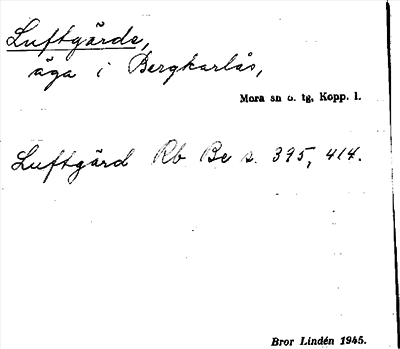 Luftgårds,
äga i Bergkarlås,
Mora sn o. tg, Kopp. l.
Luftgård Rb Be s. 395, 414.
Bror Lindén 1945.